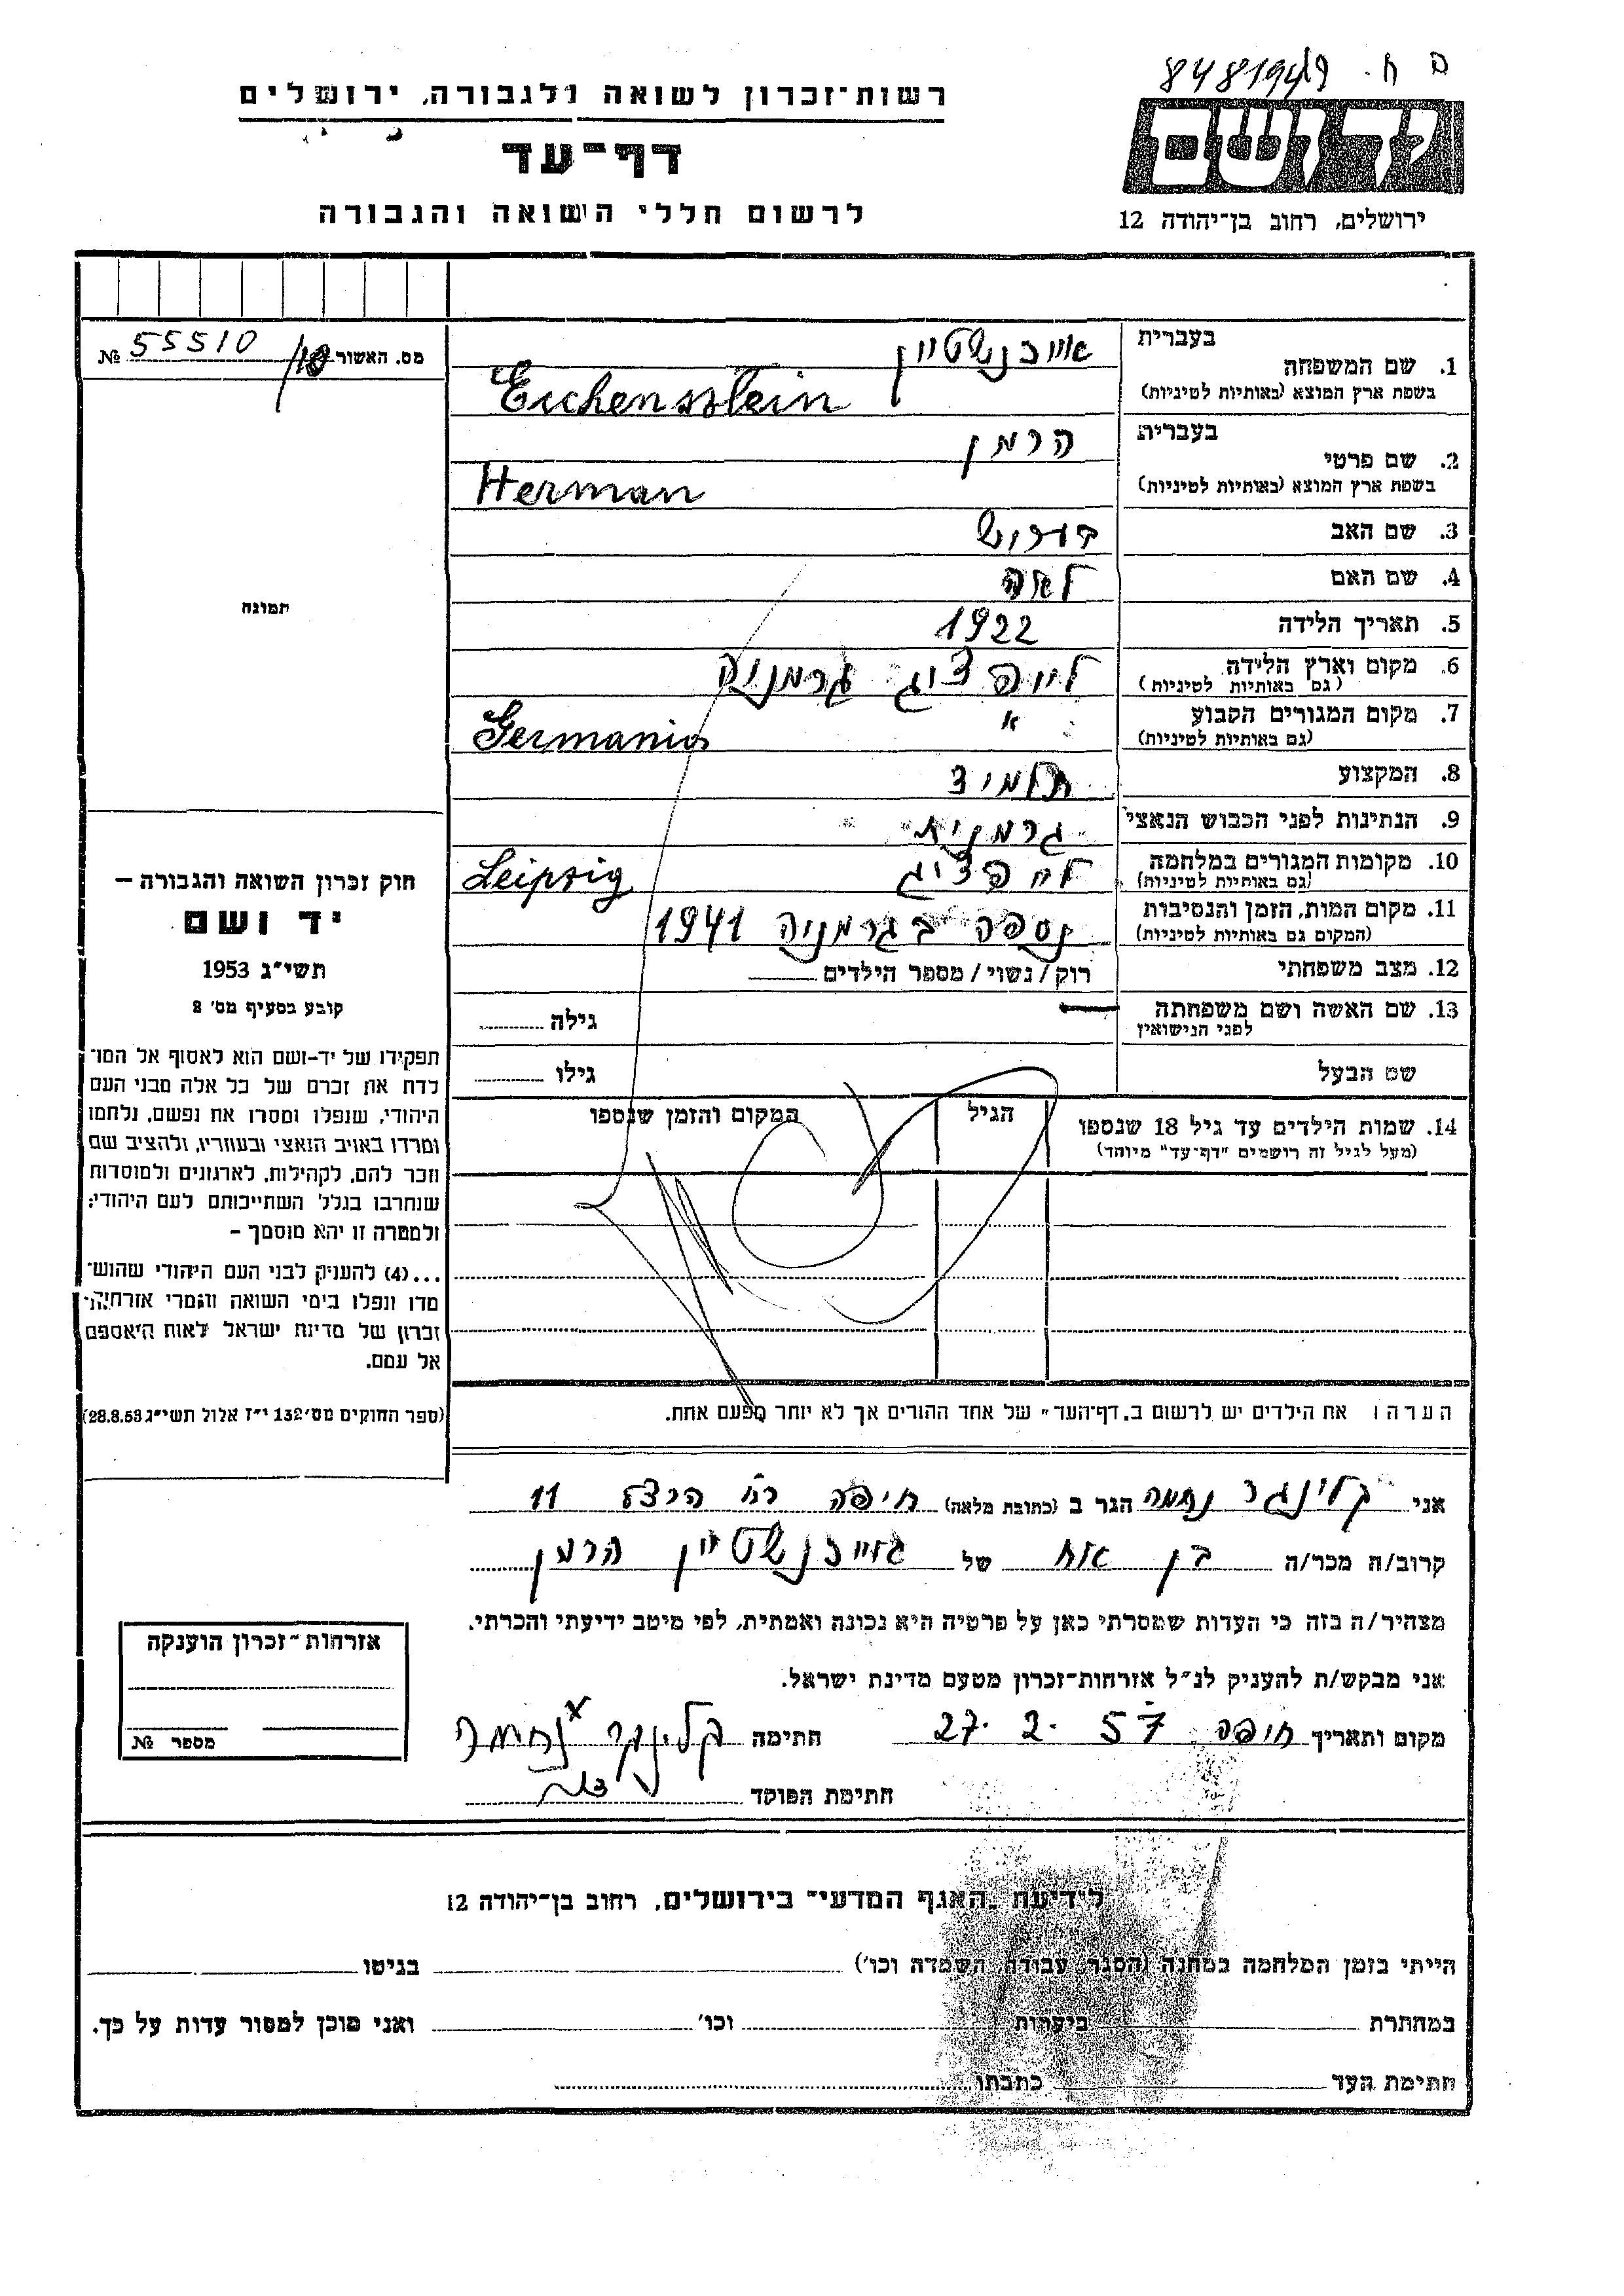 8481949 .ח ם
רשות־זכרון לשואה ולגבורה, ירושלים
יד ושם
דף־עד
לרשום חללי השואה והגבורה
ירושלים, רחוב בן־יהודה 12
מס. האשור 55510/10 №
תמונה
חוק זכרון השואה והגבורה –
יד ושם
תשי״ג 1953
קובע בסעיף מס׳ 2
תפקידו של יד-ושם הוא לאסוף אל המו־
לדת את זכרם של כל אלה מבני העם
היהודי, שנפלו ומסרו את נפשם, נלחמו
ומרדו באויב הנאצי ובעוזריו, ולהציב שם
וזכר להם, לקהילות, לארגונים ולמוסדות
שנחרבו בגלל השתייכותם לעם היהודי;
ולמטרה זו יהא מוסמך –
...(4) להעניק לבני העם היהודי שהוש־
מדו ונפלו בימי השואה והמרי אזרחות־
זכרון של מדינת ישראל לאות היאספם
אל עמם.
(ספר החוקים מס׳ 132 י״ז אלול תשי״ג 28.8.53)
בעברית
1. שם המשפחה אייכנשטיין
בשפת ארץ המוצא (באותיות לטיניות) Eichensstein
בעברית
2. שם פרטי הרמן
בשפת ארץ המוצא (באותיות לטיניות) Herman
3. שם האב
4. שם האם לאה
5. תאריך הלידה 1922
6. מקום וארץ הלידה לייפציג גרמניה
(גם באותיות לטיניות)
7. מקום המגורים הקבוע "
(גם באותיות לטיניות) Germania
8. המקצוע תלמיד
9. הנתינות לפני הכבוש הנאצי גרמנית
10. מקומות המגורים במלחמה לייפציג Leipzig
(גם באותיות לטיניות)
11. מקום המות, הזמן והנסיבות נספה בגרמניה 1941
(המקום גם באותיות לטיניות)
12. מצב משפחתי רוק / נשוי / מספר הילדים
13. שם האשה ושם משפחתה גילה
לפני הנישואין
שם הבעל גילו
14. שמות הילדים עד גיל 18 שנספו הגיל המקום והזמן שנספו
(מעל לגיל זה רושמים "דף־עד" מיוחד)
הערה: את הילדים יש לרשום ב,דף־העד" של אחד ההורים אך לא יותר מפעם אחת.
אני קלינגר נחמה הגר ב (כתובת מלאה) חיפה רח׳ הרצל 11
קרוב/ה מכר/ה בן אח של אייכנשטיין הרמן
מצהיר/ה בזה כי העדות שמסרתי כאן על פרטיה היא נכונה ואמתית, לפי מיטב ידיעתי והכרתי.
אני מבקש/ת להעניק לנ״ל אזרחות-זכרון מטעם מדינת ישראל.
מקום ותאריך חיפה 27. 2. 57 חתימה קלינגר נחמה
חתימת הפוקד
אזרחות־זכרון הוענקה
מספר №
לידיעת ,האגף המדעי" בירושלים, רחוב בן־יהודה 12
הייתי בזמן המלחמה במחנה (הסגר, עבודה, השמדה וכו׳) בגיטו
במחתרת ביערות וכו׳ ואני מוכן למסור עדות על כך.
חתימת העד כתבתו